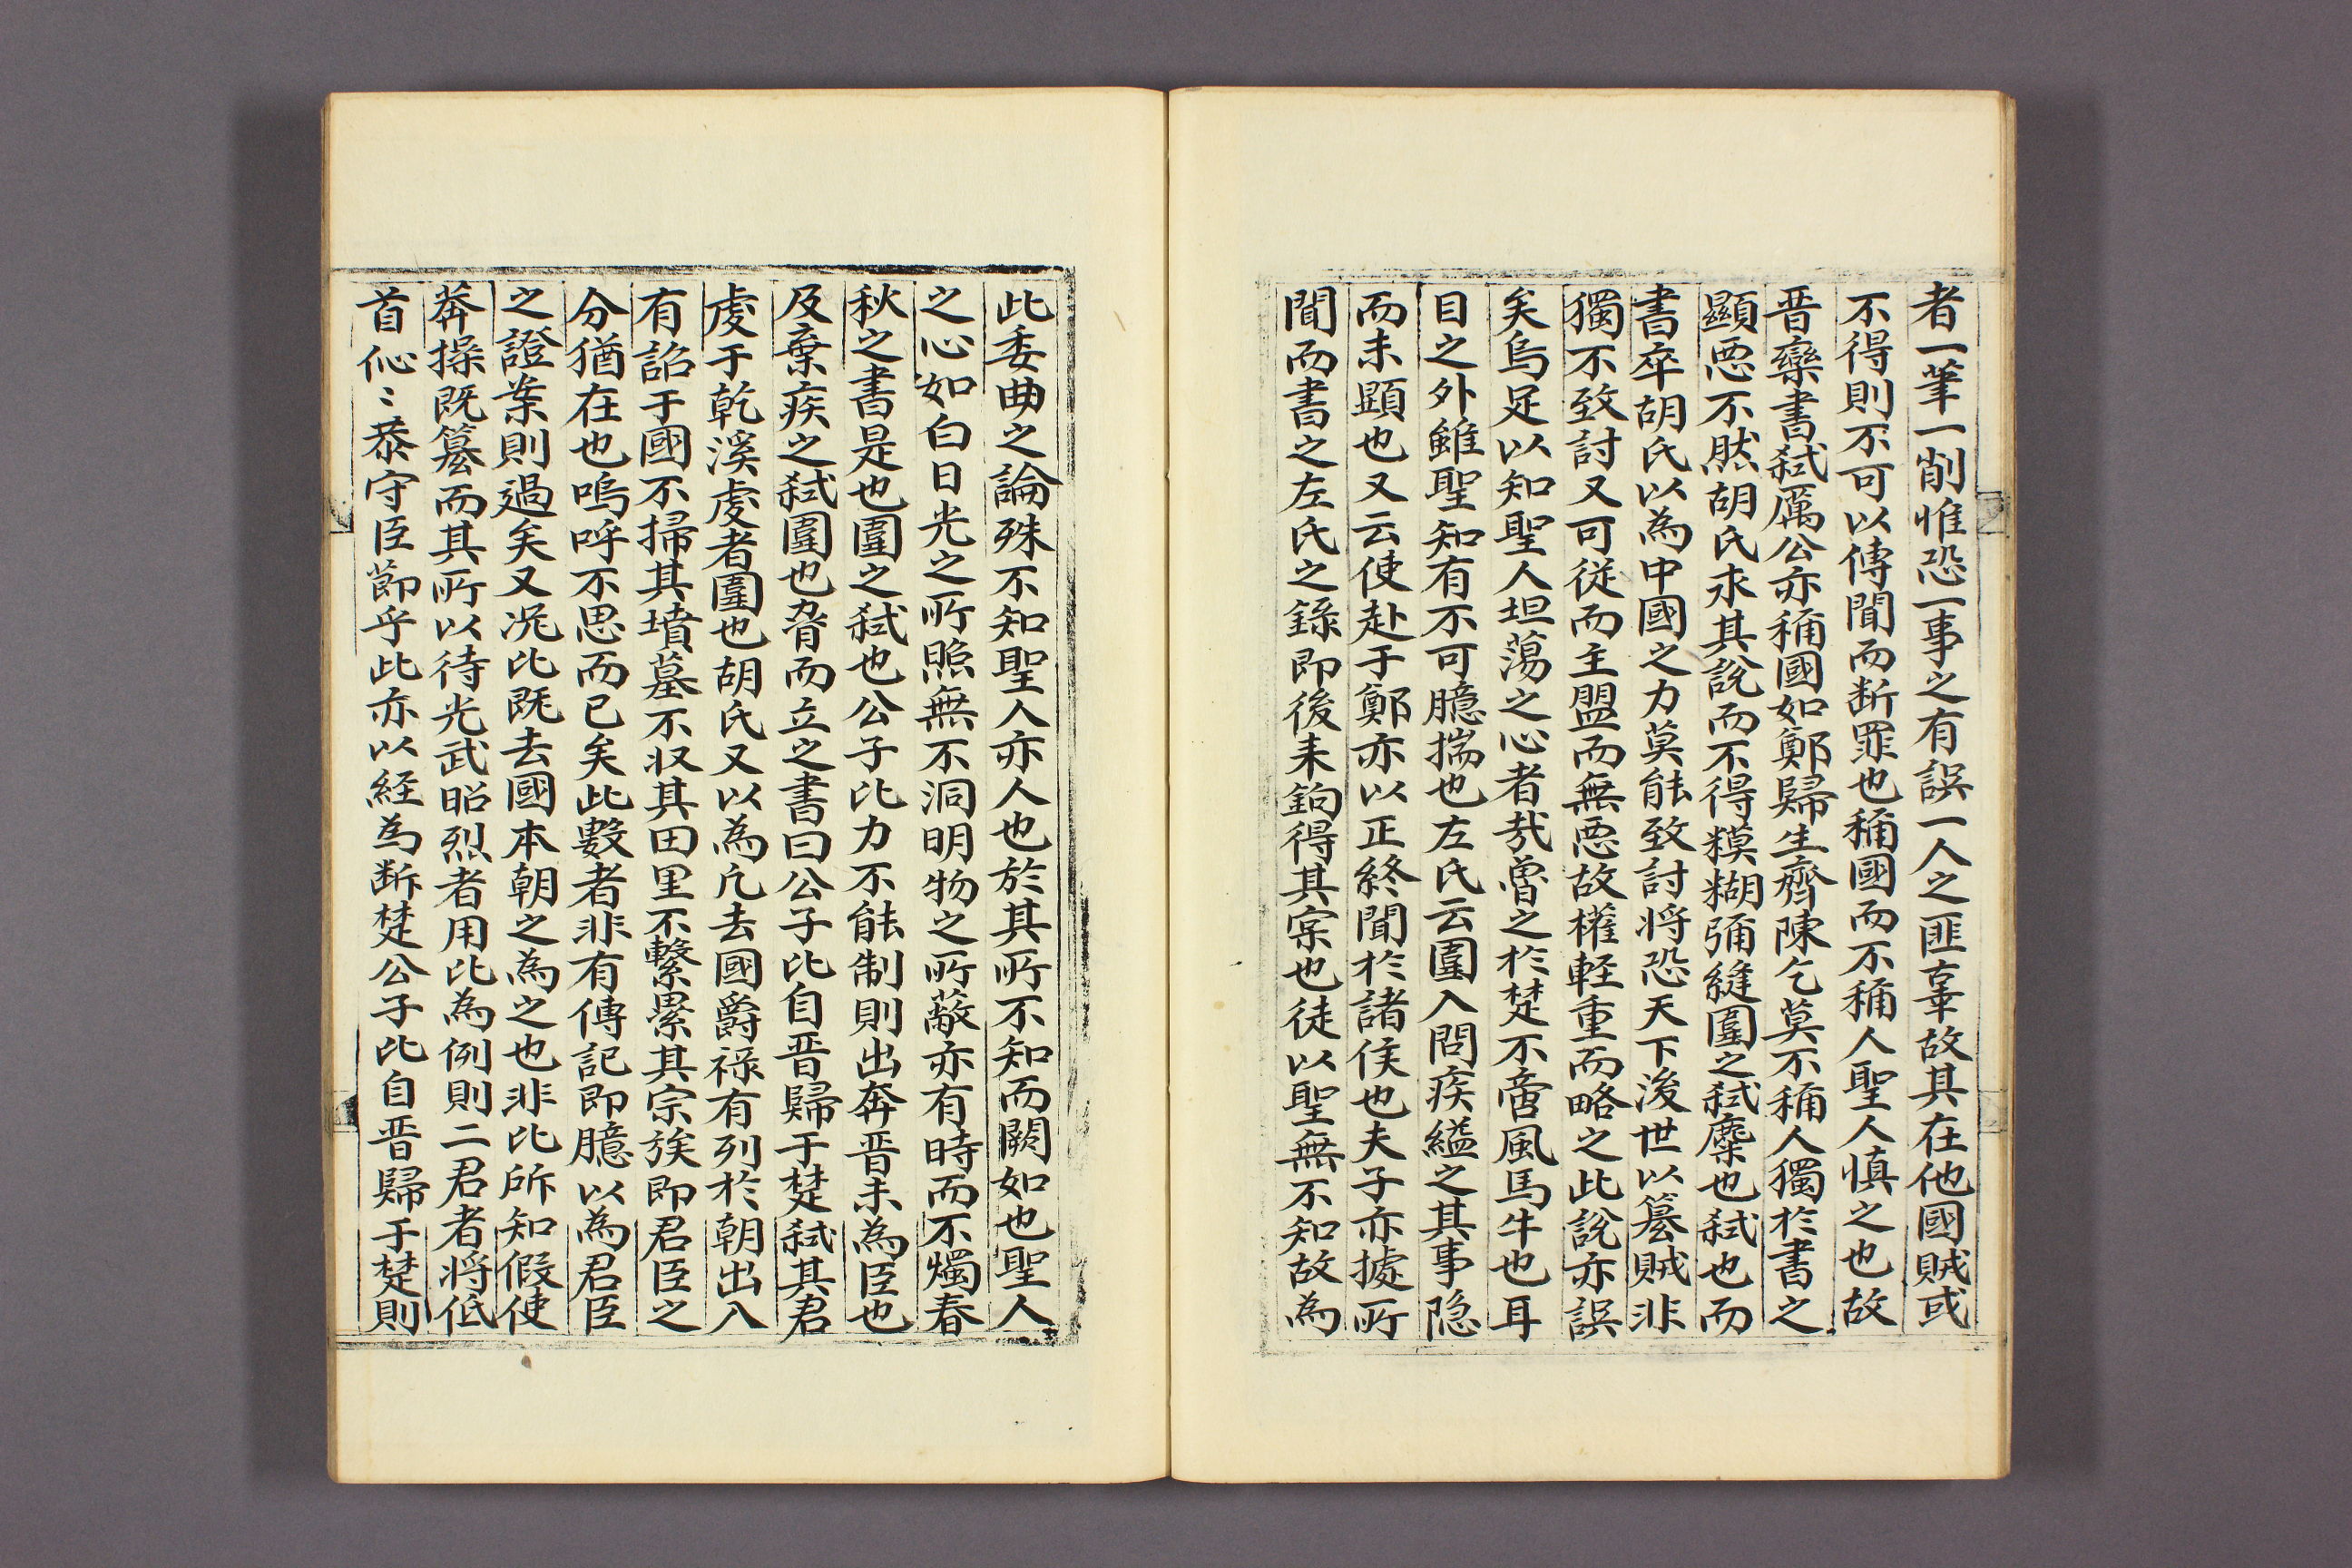 者一筆一削惟恐一事之有誤一人之匪辜故其在他國賊或
不得則不可以傳聞而断罪也稱國而不稱人聖人慎之也故
晋欒書弑厲公亦稱國如鄭歸生齊陳乞莫不稱人獨於書之
顯悪不然胡氏求其說而不得糢糊弥縫圍之弑麇也弑也而
書卒胡氏以為中國之力莫能致討将恐天下後世以簒賊非
獨不致討又可従而主盟而無悪故權軽重而略之此說亦誤
矣烏足以知聖人坦蕩之心者㢤魯之於楚不啻風馬牛也耳
目之外雖聖知有不可臆揣也左氏云圍入問疾縊之其事隐
而未顕也又云使赴于鄭亦以正終聞於諸侯也夫子亦據所
聞而書之左氏之録即後来鉤得其案也徒以聖無不知故為
此委曲之論殊不知聖人亦人也於其所不知而闕如也聖人
之心如白日光之所照無不洞明物之所蔽亦有時而不燭春
秋之書是也圍之弑也公子比力不能制則出奔晋未為臣也
及棄疾之弑圍也脅而立之書曰公子比自晋歸于楚弑其君
虔于乾溪虔者圍也胡氏又以為凢去國爵禄有列於朝出入
有詔于國不掃其墳墓不収其田里不繫累其宗族即君臣之
分猶在也嗚呼不思而已矣此數者非有傳記即臆以為君臣
之證案則過矣又况比既去國本朝之為之也非比所知假使
莽操既簒而其所以待光武昭烈者用比為例則二君者将低
首伈〻恭守臣節乎此亦以経為断楚公子比自晋歸于楚則